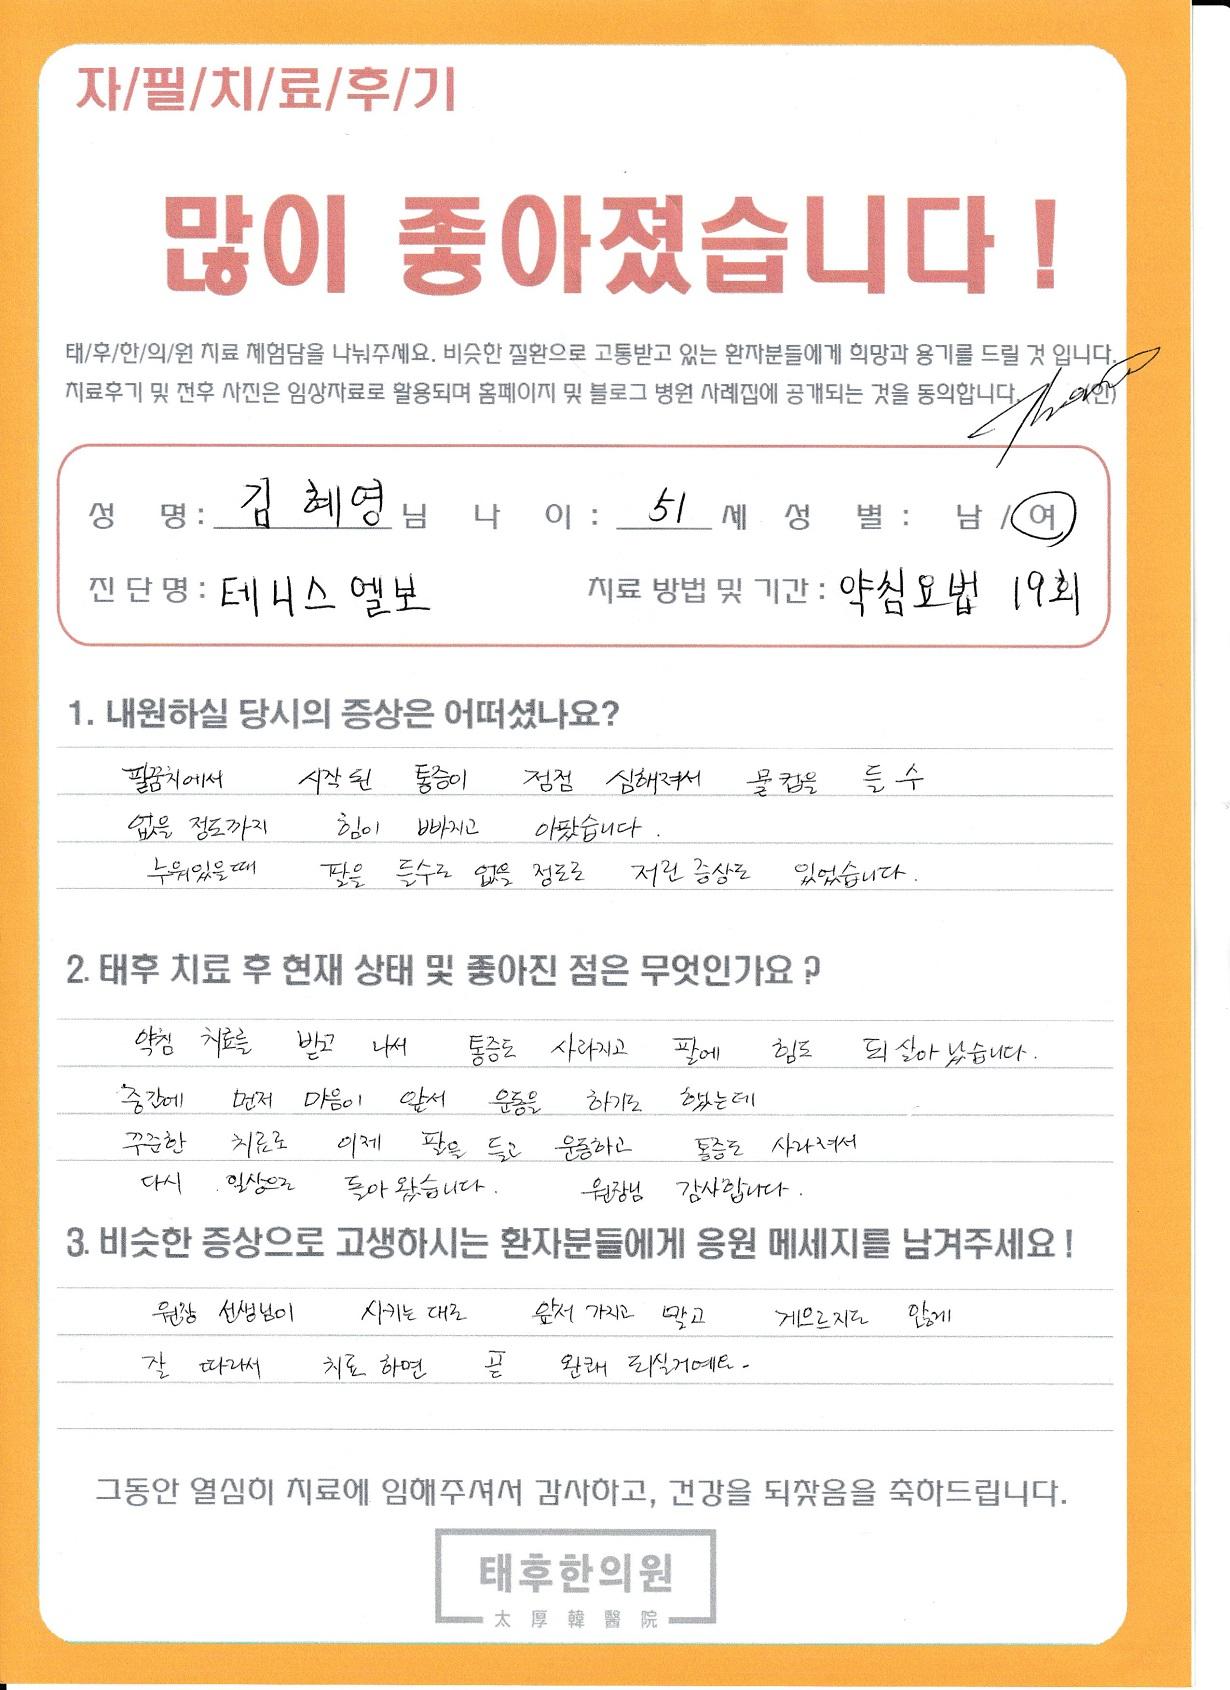 자/필/치/료/후/기
많이 좋아졌습니다 !
태/후/한/의/원 치료 체험담을 나눠주세요. 비슷한 질환으로 고통받고 있는 환자분들에게 희망과 용기를 드릴 것 입니다.
치료후기 및 전후 사진은 임상자료로 활용되며 홈페이지 및 블로그 병원 사례집에 공개되는 것을 동의합니다. (인)
성 명 : 김 혜영 님 나 이 : 51 세 성 별 : 남 / 여
진 단 명 : 테니스 엘보 치료 방법 및 기간 : 약침요법 19회
1. 내원하실 당시의 증상은 어떠셨나요?
팔꿈치에서 시작 된 통증이 점점 심해져서 물컵을 들 수
없을 정도까지 힘이 빠지고 아팠습니다.
누워있을때 팔을 들수도 없을 정도로 저린 증상도 있었습니다.
2. 태후 치료 후 현재 상태 및 좋아진 점은 무엇인가요 ?
약침 치료를 받고 나서 통증도 사라지고 팔에 힘도 되살아 났습니다.
중간에 먼저 마음이 앞서 운동을 하기도 했는데
꾸준한 치료로 이제 팔을 들고 운동하고 통증도 사라져서
다시 일상으로 돌아 왔습니다. 원장님 감사합니다.
3. 비슷한 증상으로 고생하시는 환자분들에게 응원 메세지를 남겨주세요 !
원장 선생님이 시키는 대로 앞서 가지고 말고 게으르지도 않게
잘 따라서 치료 하면 곧 완쾌 되실거예요.
그동안 열심히 치료에 임해주셔서 감사하고, 건강을 되찾음을 축하드립니다.
태후한의원
太厚韓醫院